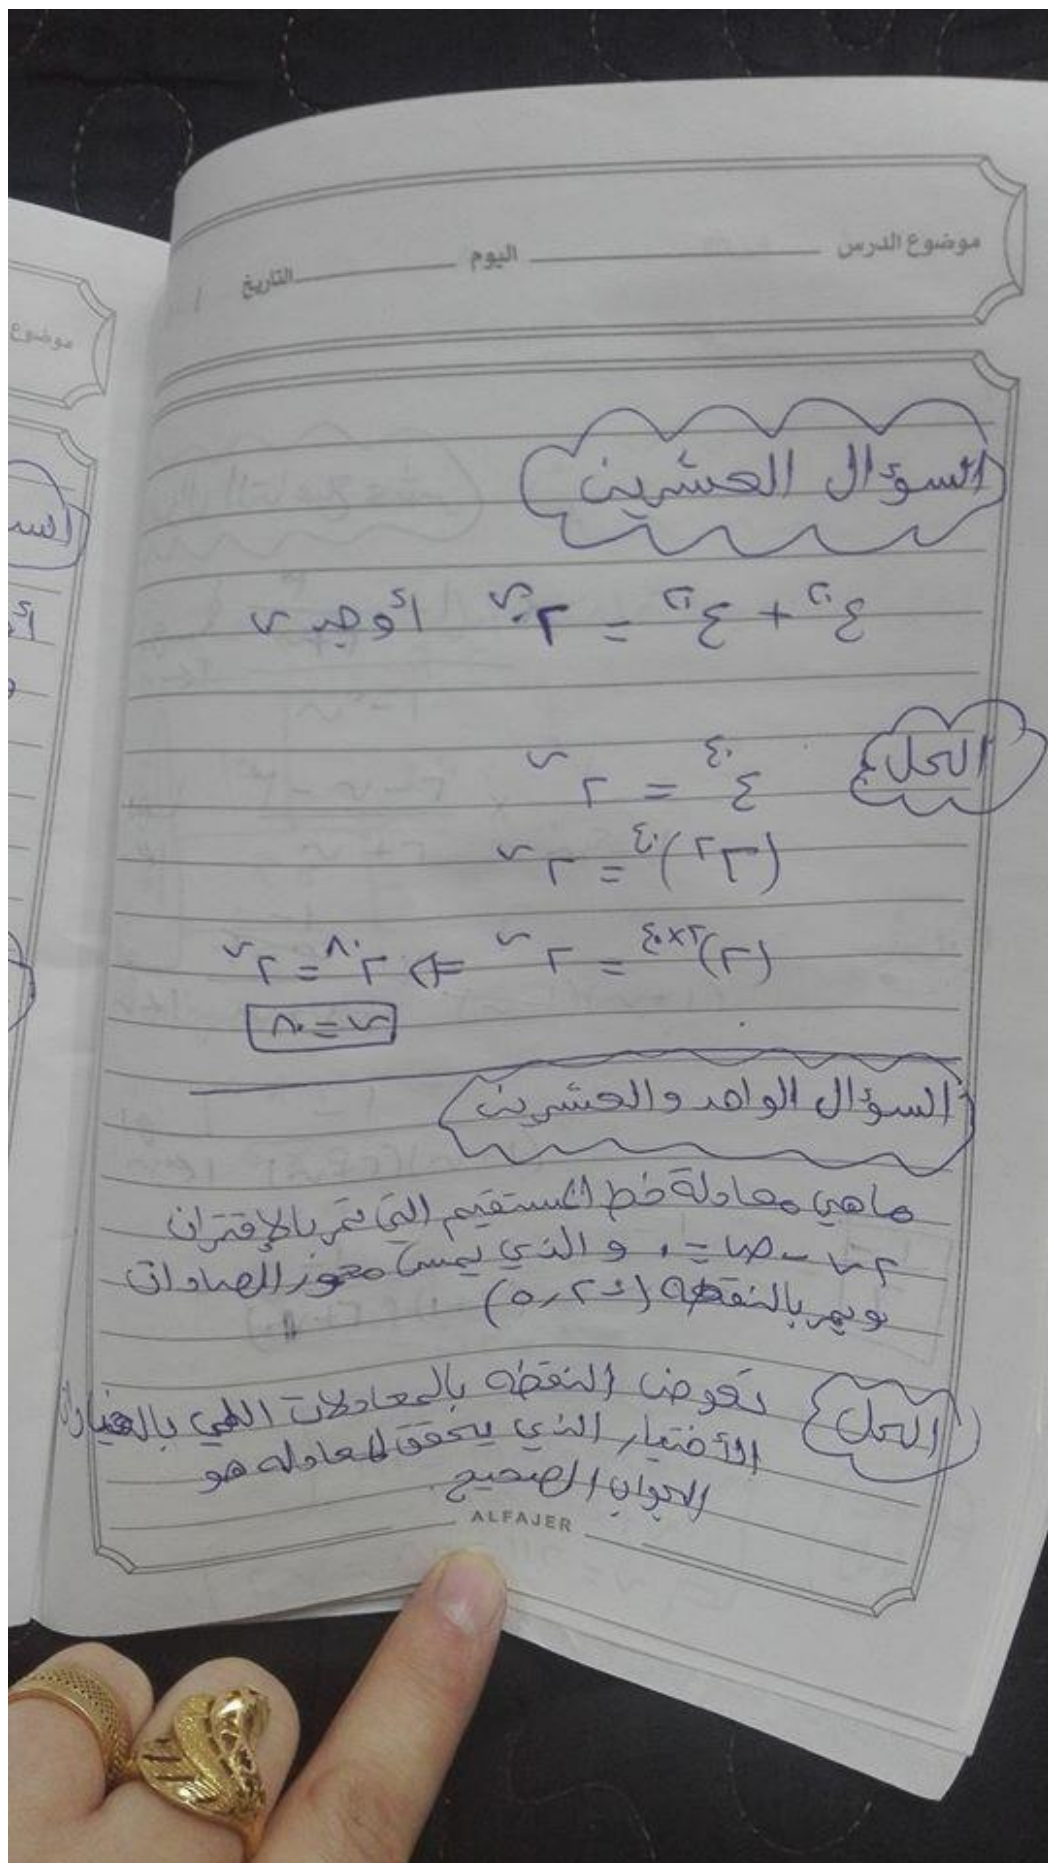 موضوع الدرس اليوم التاريخ /
موضوع
السؤال العشرين
أوجد س
الحل:
٤^٤٠ = ٢^س
(٢^٢)^٤٠ = ٢^س
(٢)^٢×٤٠ = ٢^س ⇐ ٢^٨٠ = ٢^س
س = ٨٠
السؤال الواحد والعشرين
ماهي معادلة خط المستقيم التي تمر بالإقتران
٢س - ص = ٠ والذي يمس محور الصادات
ويمر بالنقطة
الحل: نعوض النقطة بالمعادلات اللي بالخيارات
الأختيار الذي يحقق المعادله هو
الجواب الصحيح.
ALFAJER